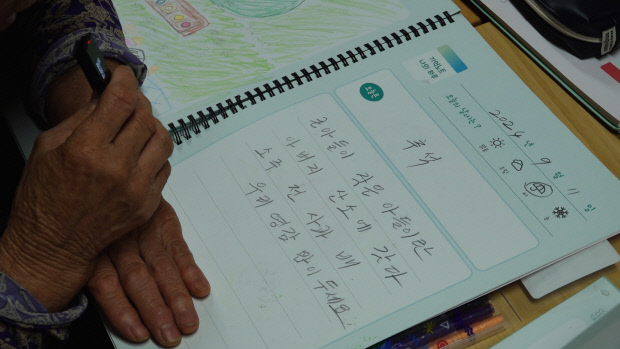 2024년 9월 11일
오늘의 날씨는?
추석
큰아들이 작은 아들이란
아버지 산소에 갓다
소주 전 사과 배
우리 영감 많이 두세요.